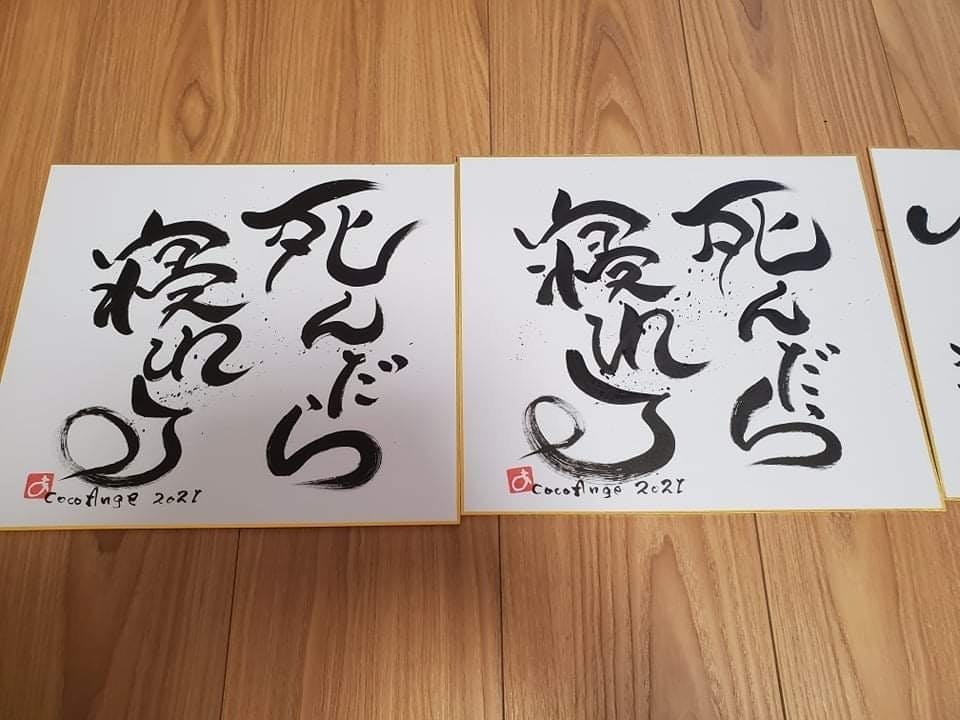 死んだら
寝れる
あ
CocoAnge 2021
死んだら
寝れる
あ
CocoAnge 2021